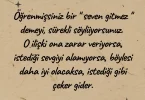 Öğrenmişsiniz bir " seven gitmez "
demeyi, sürekli söylüyorsunuz.
O ilişki ona zarar veriyorsa,
istediği sevgiyi alamıyorsa, böylesi
daha iyi olacaksa, istediği gibi
çeker gider.